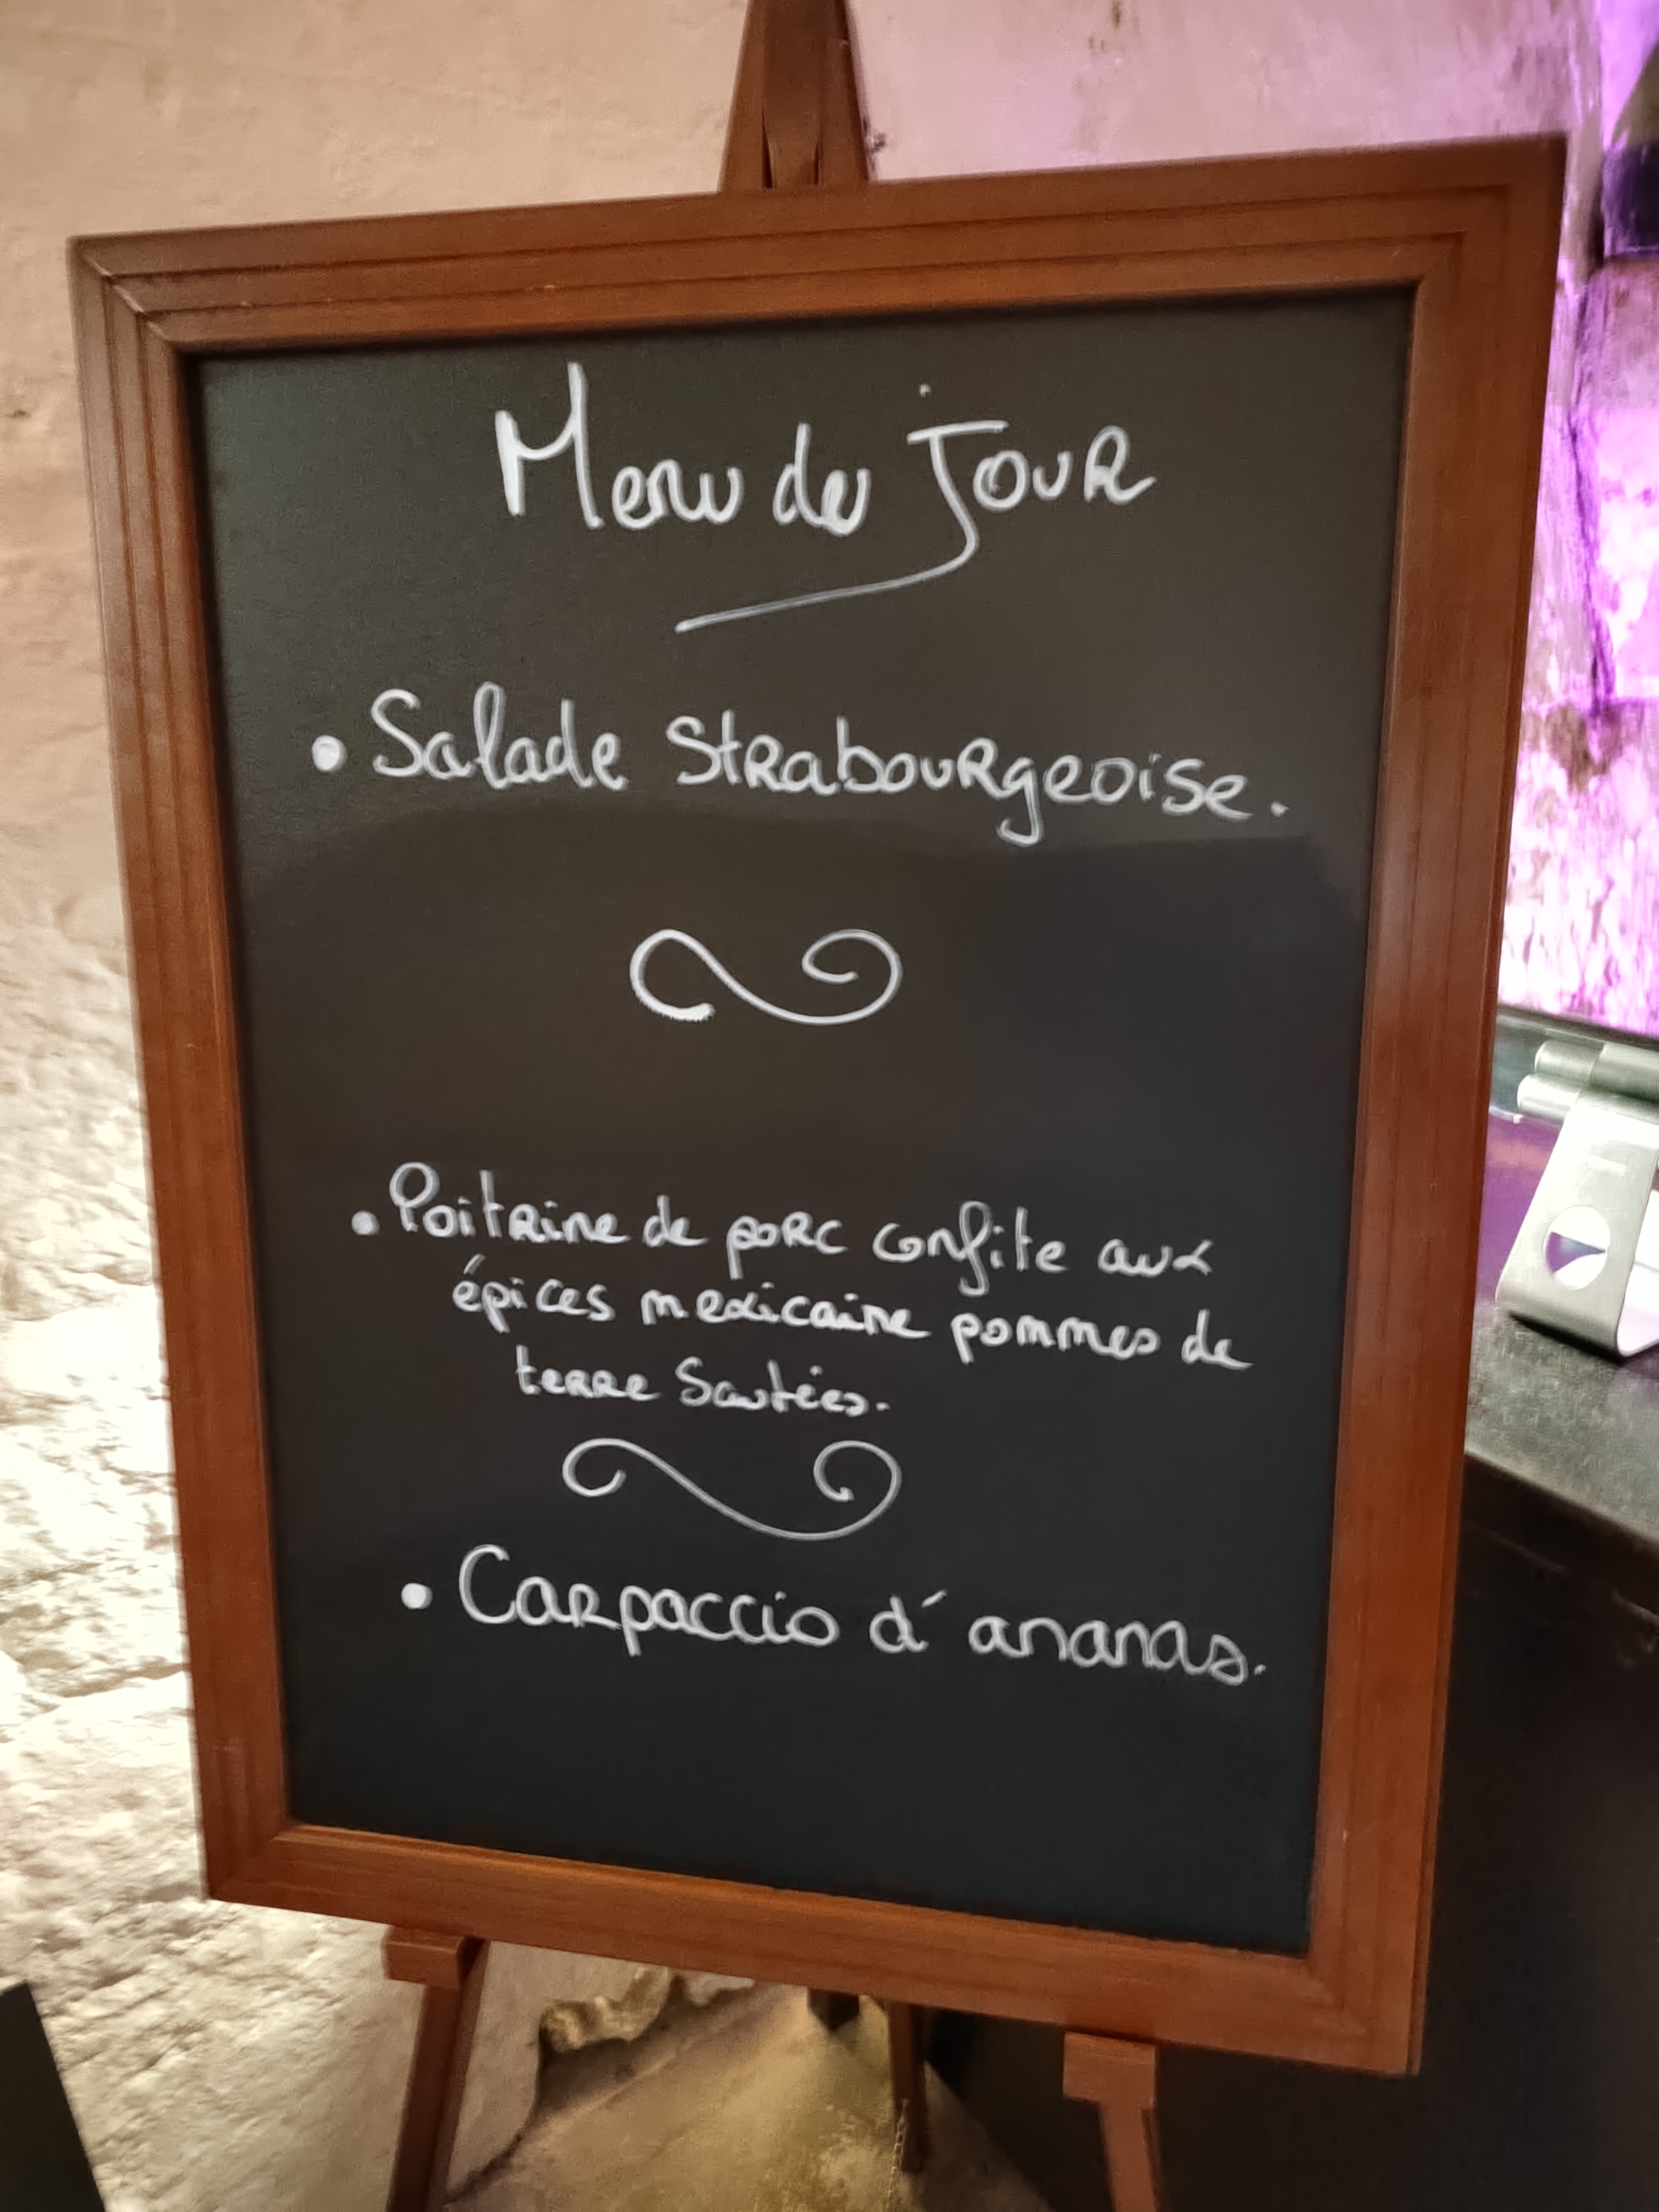 Menu du jour
• Salade Strabourgeoise.
• Poitrine de porc confite aux
épices mexicaine pommes de
terre Sautées.
• Carpaccio d'ananas.